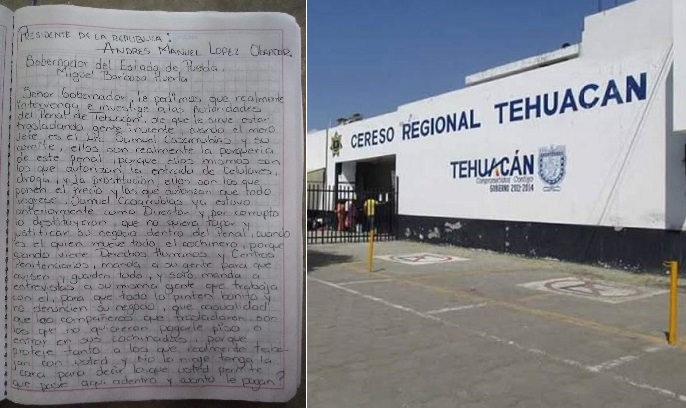 PRESIDENTE DE LA REPUBLICA:
ANDRES MANUEL LOPEZ OBRADOR.
Gobernador del Estado de Puebla
Miguel Barbosa Huerta
Señor Gobernador, le pedimos que realmente
intervenga e investige a las autoridades
del Penal de Tehuacan, de que le sirve estar
trasladando gente inocente, cuando el mero
Jefe es el Samuel Casarrubias y su
ellos son realmente la porqueria
de este penal, porque ellos mismos son
los que autorizan la entrada de celulares,
droga, y la prostitución ellos son los que
ponen el precio y los que autorizan que todo
ingrese, Samuel Casarrubias ya estuvo
anteriormente como Director y por corrupto
lo destituyeron, que no quiera tapar y
justificar su negocio dentro del Penal, cuando
es el quien mueve todo el cochinero, porque
cuando viene Derechos Humanos y Centros
Penitenciarios, manda a su gente para que
avisen y guarden todo, y solo manda a
entrevistas a su misma gente que trabaja
con el, para que todo lo pinten bonito y
no denuncien su negocio, que casualidad
que los compañeros que trasladaron son
los que no quisieron pagarle piso o
entrar en sus cochinadas, porque
protege tanto a los que realmente
con usted, No lo niege tenga la
cara para decir lo que usted permite
que pase aqui adentro y cuanto le pagan?
CERESO REGIONAL TEHUACAN
TEHUACÁN
Compromiso Contigo
GOBIERNO 2011-2014